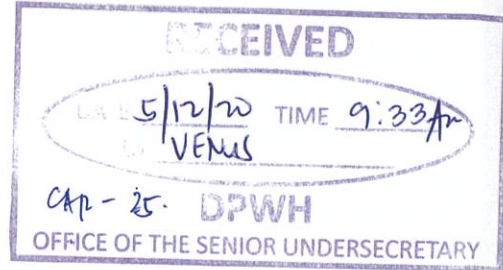 RECEIVED
DATE 5/12/20 TIME 9:33AM
BY VENUS
CAR - 25.
DPWH
OFFICE OF THE SENIOR UNDERSECRETARY